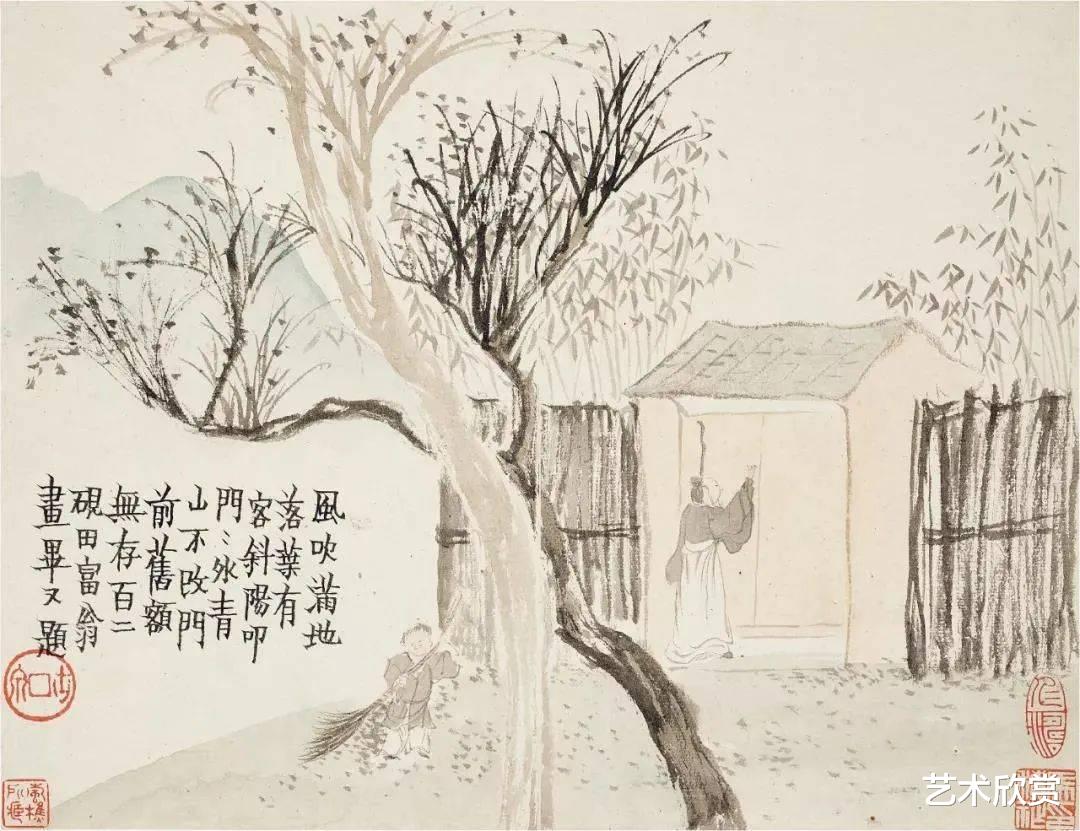 風吹滿地
落葉有
客斜陽叩
門〻外青
山不改門
前舊額
無存百二
硯田富翁
畫畢又題
艺术欣赏